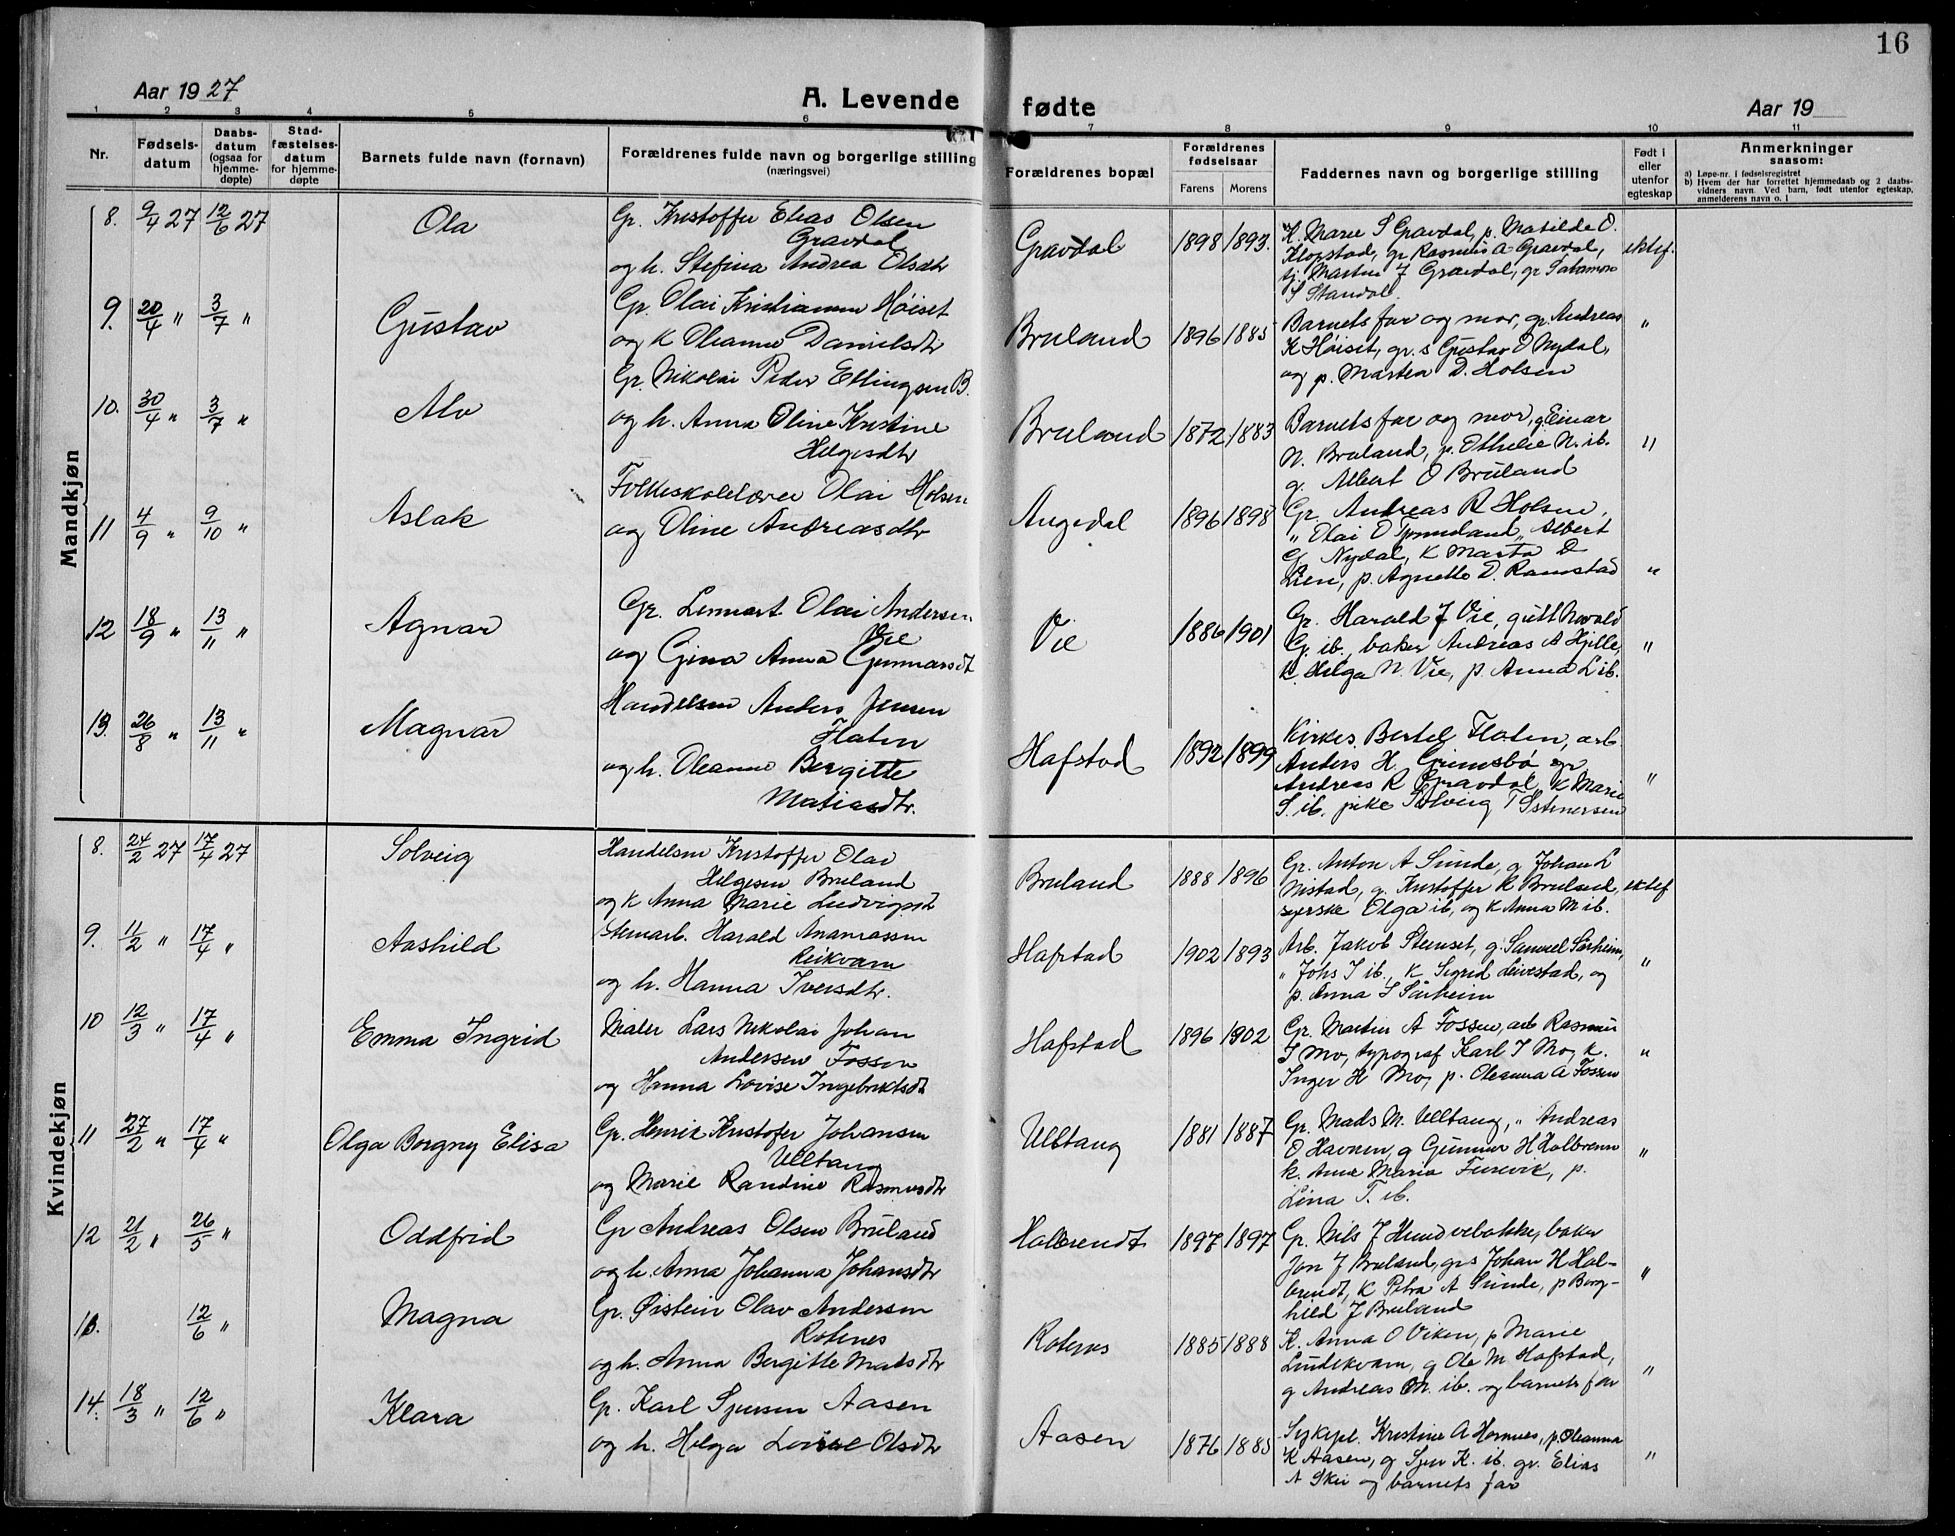 16
Aar 1927
A. Levende fødte
Aar 19
1 2 3 4 5 6 7 8 9 10 11
Nr.
Fødsels-
datum
Daabs-
datum
(ogsaa for
hjemme-
døpte)
Stad-
fæstelses-
datum
for hjemme-
døpte
Barnets fulde navn (fornavn)
Forældrenes fulde navn og borgerlige stilling
(næringsvei)
Forældrenes bopæl
Forældrenes
fødselsaar
Farens Morens
Faddernes navn og borgerlige stilling
Født i
eller
utenfor
egteskap
Anmerkninger
saasom:
a) Løpe-nr. i fødselsregistret
b) Hvem der har forrettet hjemmedaab og 2 daabs-
vidners navn. Ved barn, født utenfor egteskap,
anmelderens navn o. l
Mandkjøn
8. 9/4 27 12/6 27 Ola
Gr. Kristoffer Elias Olsen
Gravdal
og h. Stefina Andrea Olsdtr
Gravdal 1898 1893.
K. Marie S Gravdal, p. Matilde O.
Klopstad, gr Rasmus A Gravdal,
tj. Martin J Gravdal, gr
S Standal.
ektef.
9. 20/4 " 3/7 " Gustav
Gr. Olai Kristiansen Høiset
og k Oleanne Danielsdtr
Bruland 1896 1885
Barnets far og mor, gr. Andreas
K Høiset, gr. s Gustav O Nydal,
og p. Martea D. Holsen
"
10. 30/4 " 3/7 " Alv
Gr. Nikolai Peder Ellingsen B.
og h. Anna Oline Kristine
Helgesdtr
Bruland 1872 1883
Barnets far og mor, g. Einar
N. Bruland, p. Othelie N. ib.
g. Albert O Bruland
"
11 4/9 " 9/10 " Aslak
Folkeskolelærer Olai Holsen
og Oline Andreasdtr
Angedal 1896 1898
Gr. Andreas R Holsen,
" Olai O Tonneland, " Albert
G Nydal, k Marta D
Lien, p. Agnette D. Ramstad
"
12 18/9 " 13/11 " Agnar
Gr. Lennart Olai Andersen
Vie
og Gina Anna Gunnarsdt
Vie 1886 1901
Gr. Harald J Vie, gutt Nevald
G. ib., baker Andreas A Hjelle,
k. Helga N. Vie, p. Anna L ib.
"
13. 26/8 " 13/11 " Magnar
Handelsm Anders Jensen
Flaten
og h. Oleanne Bergitte
Matiasdtr.
Hafstad 1892 1899
Kirkes. Bertel Flaten, arb.
Anders H. Grimsbø gr
Andreas R Gravdal, k Marie
S. ib. pike Solveig T Sstenersen
"
Kvindekjøn
8. 24/2 27 17/4 27 Solveig
Handelsm Kristoffer Olai
Helgesen Bruland
og k Anna Marie Ludvigsdt
Bruland 1888 1896
Gr. Anton A Sunde, g Johan L
Nistad, g. Kristoffer K Bruland,
syerske Olga ib, og k Anna M ib.
ektef
9. 11/2 " 17/4 " Aashild
Stenarb. Harald Ananiassen
Reikvam
og h. Hanna Iversdtr.
Hafstad 1902 1893
Arb. Jakob Stenset, g. Samuel Sårheim,
" Johs I ib., k Sigrid Leivestad, og
p. Anna S Sårheim
"
10 12/3 " 17/4 " Emma Ingrid
Maler Lars Nikolai Johan
Andersen Fossen
og Hanna Lovise Ingebriktsdt
Hafstad 1896 1902
Gr. Martin A Fossen, arb Rasmus
I Mo, typograf Karl I Mo, k.
Inger H Mo, p. Oleanna A Fossen
"
11 27/2 " 17/4 " Olga Borgny Elisa
Gr. Henrik Kristofer Johansen
Ulltang
og Marie Randine Rasmusdtr
Ulltang 1881 1887
Gr. Mads M. Ulltang, " Andreas
O Havnen, g Gunnar H Halbrenn
k. Anne Maria Furevik, p.
Lina T. ib.
"
12 21/2 " 26/5 " Oddfrid
Gr Andreas Olsen Bruland
og h. Anna Johanna Johansdtr
Halbrendt 1897 1897
Gr. Nils J Hundvebakke, baker
Jon J Bruland, grs Johan H Hal-
brendt, k Petra A Sunde, p Borg-
hild J Bruland
"
13. 12/6 " Magna
Gr. Øistein Olav Andersen
Rotenes
og h. Anna Bergitte Madsdtr
Rotenes 1885 1888
K. Anna O Viken, p Marie
Lindekvam, g Ole M Hafstad,
g Andreas M. ib. og barnets far
"
14. 18/3 " 12/6 " Klara
Gr. Karl Sjursen Aasen
og h. Helga Lovise Olsdtr
Aasen 1876 1885
Sykepl. Kristine A Hornnes, p. Oleanna
K Aasen, g Sjur K. ib. gr. Elias
A Skei og barnets far
"